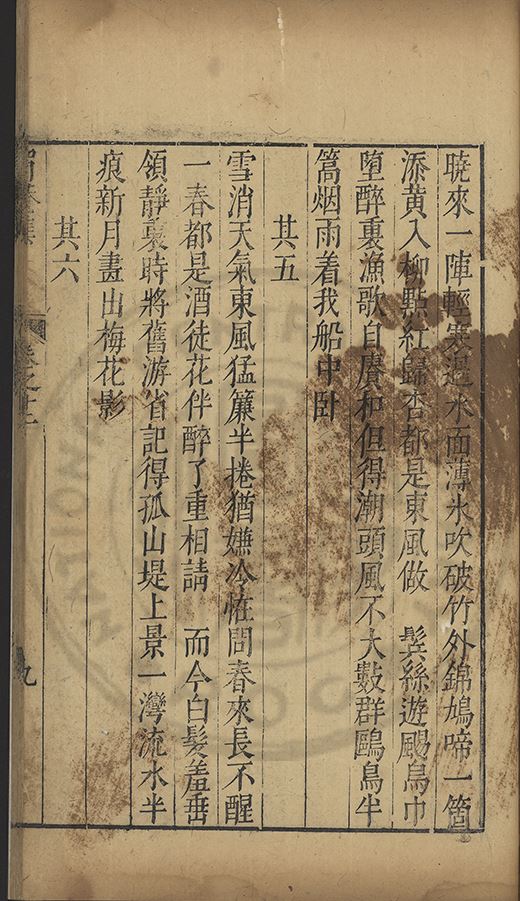 曉來一陣輕寒退水面薄氷吹破竹外錦鳩啼一箇
添黃入柳點紅歸杏都是東風做　鬂絲遊颺烏巾
墮醉裏漁歌自賡和但得潮頭風不大數群鷗鳥半
篙烟雨着我船中卧
其五
雪消天氣東風猛簾半捲猶嫌冷怪問春來長不醒
一春都是酒徒花伴醉了重相請　而今白髮羞垂
領靜裏時將舊游省記得孤山堤上景一灣流水半
痕新月畫出梅花影
其六
九